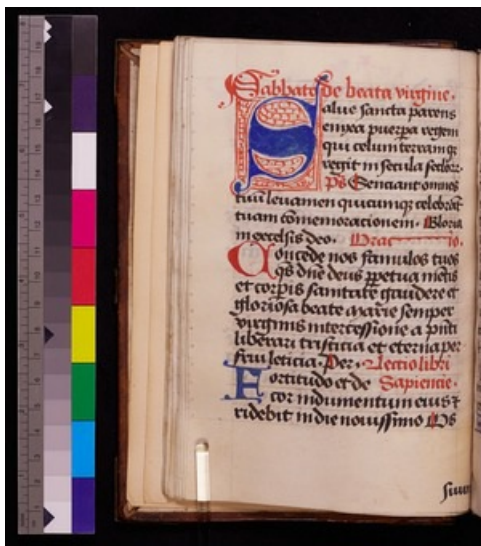 Sabbato de beata virgine.
Salue sancta parens
enixa puerpa regem
qui celum terramq
regit in secula seclorr.
Ps Sentiant omnes
tuū leuamen quicumq celebrāt
tuam cōmemorationem. Gloria
in excelsis deo. Oracio.
Concede nos famulos tuos
qs dn̄e deus ꝑpetua mētis
et corꝑis sanitate gaudere et
gloriosa beate marie semper
virginis intercessione a pn̄ti
liberari tristicia et eterna per
frui leticia. Per. Lectio libri
Fortitudo et de Sapiencie.
cor indumentum eius ⁊
ridebit in die nouissimo Os